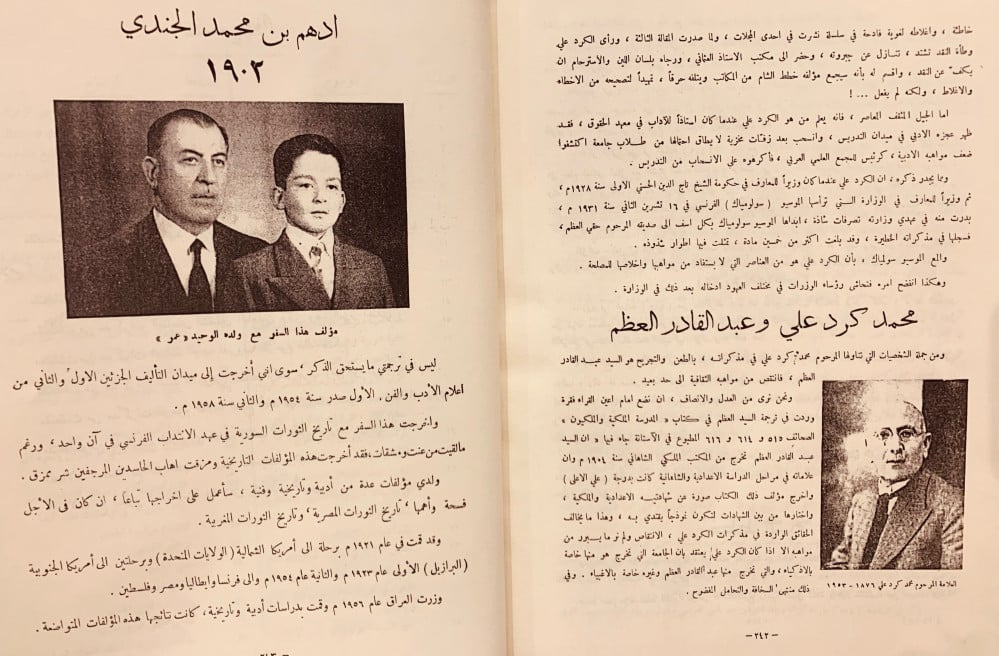 خاطئة ، واغلاطه لغوية فادحة في سلسلة نشرت في احدى المجلات ، ولما صدرت المقالة الثالثة ، ورأى الكرد علي
وطأة النقد تشتد ، تنازل عن جبروته ، وحضر الى مكتب الاستاذ العثماني ، ورجاه بلسان اللين والاسترحام ان
يكف عن النقد ، واقسم له بأنه سيجمع مؤلفه خطط الشام من المكاتب ويتلفه حرقاً ، تمهيداً لتصحيحه من الاخطاء
والاغلاط ، ولكنه لم يفعل ... !
اما الجيل المثقف المعاصر ، فانه يعلم من هو الكرد علي عندما كان استاذاً للآداب في معهد الحقوق ، فقد
ظهر عجزه الادبي في ميدان التدريس ، وانسحب بعد زفات مخزية لا يطاق احتمالها من طلاب جامعة اكتشفوا
ضعف مواهبه الادبية ، كرئيس للمجمع العلمي العربي ، فأكرهوه على الانسحاب من التدريس .
ومما يجدر ذكره ، ان الكرد علي عندما كان وزيراً للمعارف في حكومة الشيخ تاج الدين الحسني الاولى سنة ١٩٢٨ م ،
ثم وزيراً للمعارف في الوزارة التي ترأسها الموسيو ( سولومياك ) الفرنسي في ١٦ تشرين الثاني سنة ١٩٣١ م ،
بدرت منه في عهدي وزارته تصرفات شاذة ، ابداها الموسيو سولومياك بكل اسف الى صديقه المرحوم حقي العظم ،
فسجلها في مذكراته الخطيرة ، وقد بلغت اكثر من خمسين مادة ، تمثلت فيها اطوار شذوذه .
والمع الموسيو سولمياك ، بأن الكرد علي هو من العناصر التي لا يستفاد من مواهبها واخلاصها للمصلحة .
وهكذا انفضح امره فتحاشى رؤساء الوزرات في مختلف العهود ادخاله بعد ذلك في الوزارة .
محمد كرد علي وعبد القادر العظم
ومن جملة الشخصيات التي تناولها المرحوم محمد كرد علي في مذكراته ، بالطعن والتجريح هو السيد عبد القادر
العظم ، فانتقص من مواهبه الثقافية الى حد بعيد .
ونحن نرى من العدل والانصاف ، ان نضع امام اعين القراء فقرة
وردت في ترجمة السيد العظم في كتاب « المدرسة الملكية والملكيون »
الصحائف ٥١٥ و ٦١٤ و ٦١٦ المطبوع في الآستانة جاء فيها « ان السيد
عبد القادر العظم تخرج من المكتب الملكي الشاهاني سنة ١٩٠٤ م وان
علاماته في مراحل الدراسة الاعدادية والشاهانية كانت بدرجة ( علي الاعلى )
واخرج مؤلف ذلك الكتاب صورة عن شهادتيه الاعدادية والملكية ،
واختارها من بين الشهادات لتكون نموذجاً يقتدى به ، وهذا ما يخالف
الحقائق الواردة في مذكرات الكرد علي ، الانتقاص ولم نر ما يبرر من
مواهبه الا اذا كان الكرد علي يعتقد بان الجامعة التي تخرج هو منها خاصة
بالاذكياء ، والتي تخرج منها عبد القادر العظم وغيره خاصة بالاغبياء . وفي
ذلك منتهى السخافة والتحامل المفضوح .
العلامة المرحوم محمد كرد علي ١٨٧٦ - ١٩٥٣
— ٢٤٢ —
ادهم بن محمد الجندي
١٩٠٢
مؤلف هذا السفر مع ولده الوحيد « عمر »
ليس في ترجمتي ما يستحق الذكر ، سوى انني أخرجت إلى ميدان التأليف الجزئين الاول والثاني من
اعلام الأدب والفن . الأول صدر سنة ١٩٥٤ م والثاني سنة ١٩٥٨ م .
واخرجت هذا السفر مع تاريخ الثورات السورية في عهد الانتداب الفرنسي في آن واحد ، ورغم
ما لقيت من عنت ومشقات ، فقد أخرجت هذه المؤلفات التاريخية ومزقت اهاب الحاسدين المرجفين شر ممزق .
ولدي مؤلفات عدة من أدبية وتاريخية وفنية ، سأعمل على اخراجها تباعاً ، ان كان في الأجل
فسحة وأهمها ، تاريخ الثورات المصرية ، وتاريخ الثورات المغربية .
وقد قمت في عام ١٩٢١ م برحلة الى أمريكا الشمالية ( الولايات المتحدة ) وبرحلتين الى أمريكا الجنوبية
( البرازيل ) الأولى عام ١٩٢٣ م والثانية عام ١٩٥٤ م والى فرنسا وايطاليا ومصر وفلسطين .
وزرت العراق عام ١٩٥٦ م وقمت بدراسات أدبية وتاريخية ، كانت نتائجها هذه المؤلفات المتواضعة .
— ٢٤٣ —